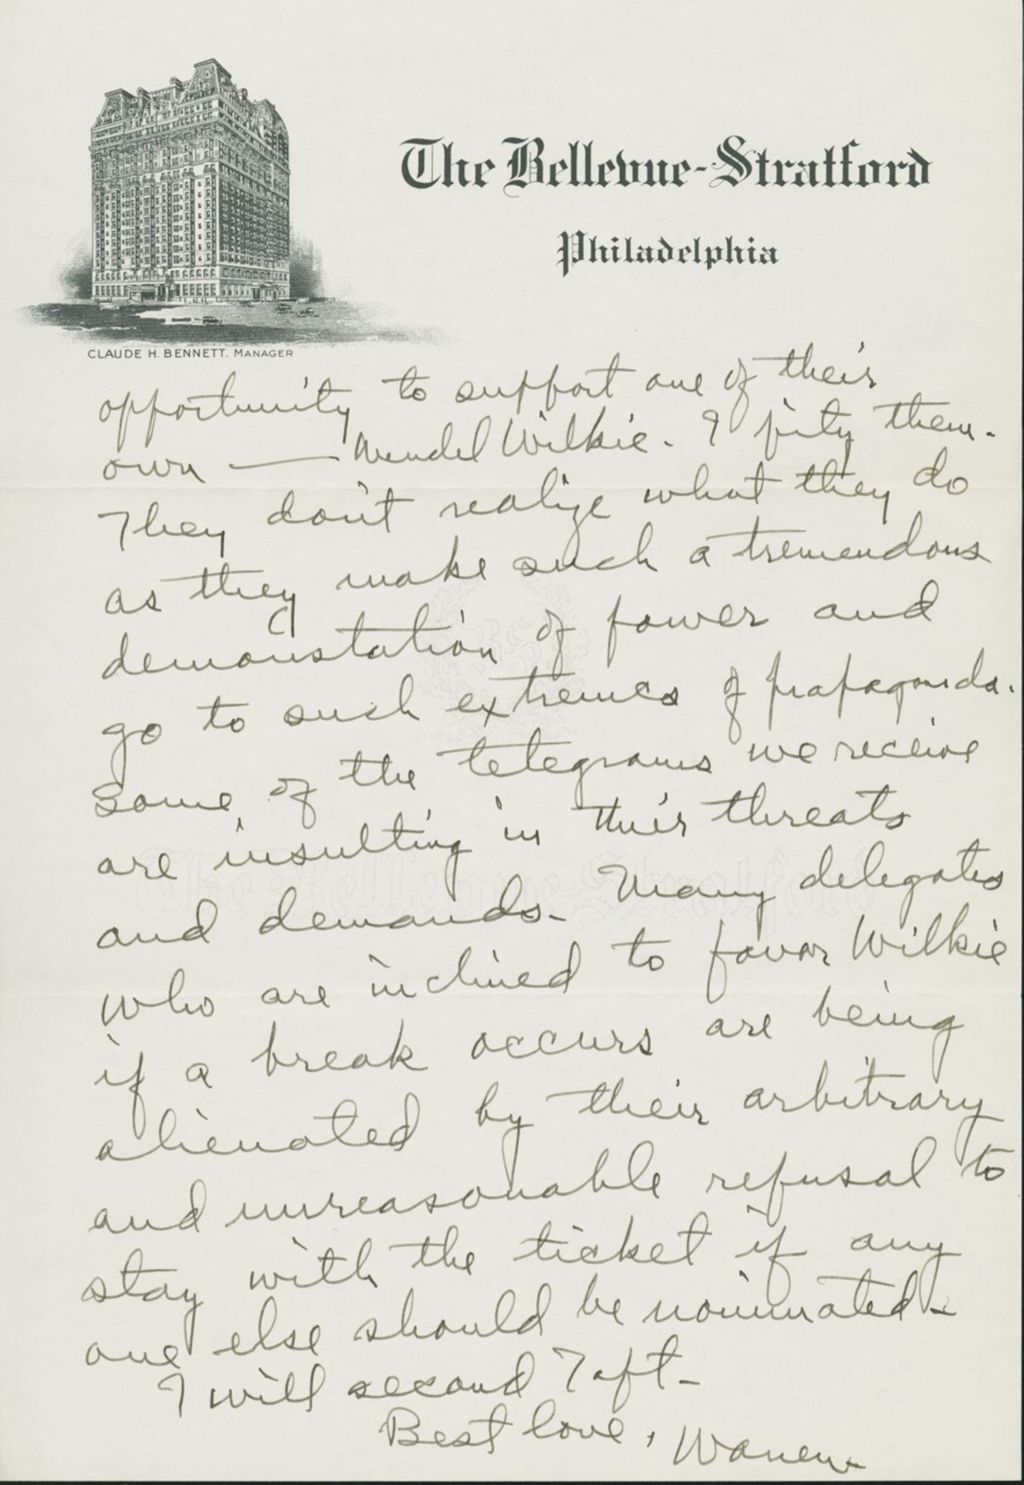 The Bellevue-Stratford
Philadelphia
CLAUDE H. BENNETT, MANAGER
opportunity to support one of their
own — Wendel Wilkie. I pity them.
They don't realize what they do
as they make such a tremendous
demonstation of power and
go to such extremes of propaganda.
Some of the telegrams we receive
are insulting in their threats
and demands. Many delegates
who are inclined to favor Wilkie
if a break occurs are being
alienated by their arbitrary
and unreasonable refusal to
stay with the ticket if any
one else should be nominated.
I will second Taft.
Best love, Warren